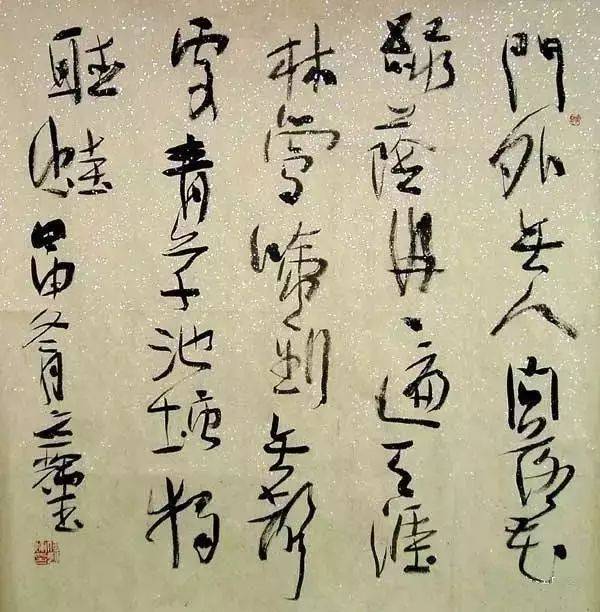 門外無人問落花
綠蔭冉々遍天涯
林鶯啼到無聲
處青草池塘獨
聽蛙 甲申冬月